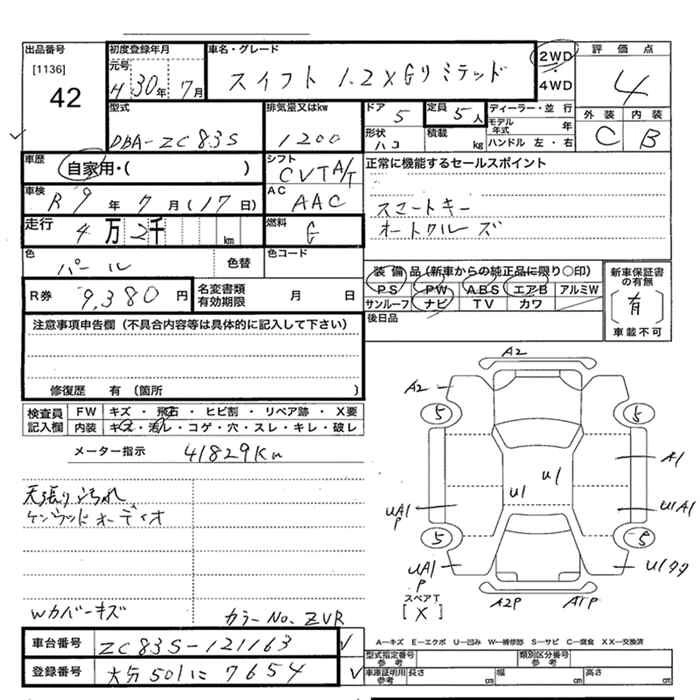 出品番号 初度登録年月 車名・グレード 2WD 評価点
[1136] 元号 スイフト 1.2 XGリミテッド ・ 4
42 H 30年 7月 4WD
型式 排気量又はkw ドア 5 定員 5人 ディーラー・並行 外装 内装
DBA-ZC83S 1200 形状 ハコ 積載 kg モデル年式 年 C B
ハンドル 左・右
車歴 自家用・( ) シフト CVT A/T 正常に機能するセールスポイント
車検 R9年 7月(17日) AC AAC スマートキー
走行 4万2千 km 燃料 G オートクルーズ
色 パール 色替 色コード
装備品(新車からの純正品に限り○印) 新車保証書の有無
R券 9,380円 名変書類有効期限 月 日 PS PW ABS エアB アルミW (有)
サンルーフ ナビ TV カワ 車載不可
注意事項申告欄(不具合内容等は具体的に記入して下さい) 後日品
修復歴 有(箇所 )
検査員記入欄 FW キズ・飛石・ヒビ割・リペア跡・X要
内装 キズ・汚レ・コゲ・穴・スレ・キレ・破レ
メーター指示 41829Km
天張り汚れ
ケンウッドオーディオ
Wカバーキズ カラーNo. ZVR
A2
A2
5 5
A1
U1 U1
UA1 P U1A1
5 5
UA1 P
スペアT
[X] A2P A1P
A―キズ E―エクボ U―凹み W―補修跡 S―サビ C―腐食 XX―交換済
車台番号 ZC83S-121163 型式指定番号 参考 類別区分番号 参考
登録番号 大分 501 に 7654 車庫証明用 参考 長さ cm 幅 cm 高さ cm